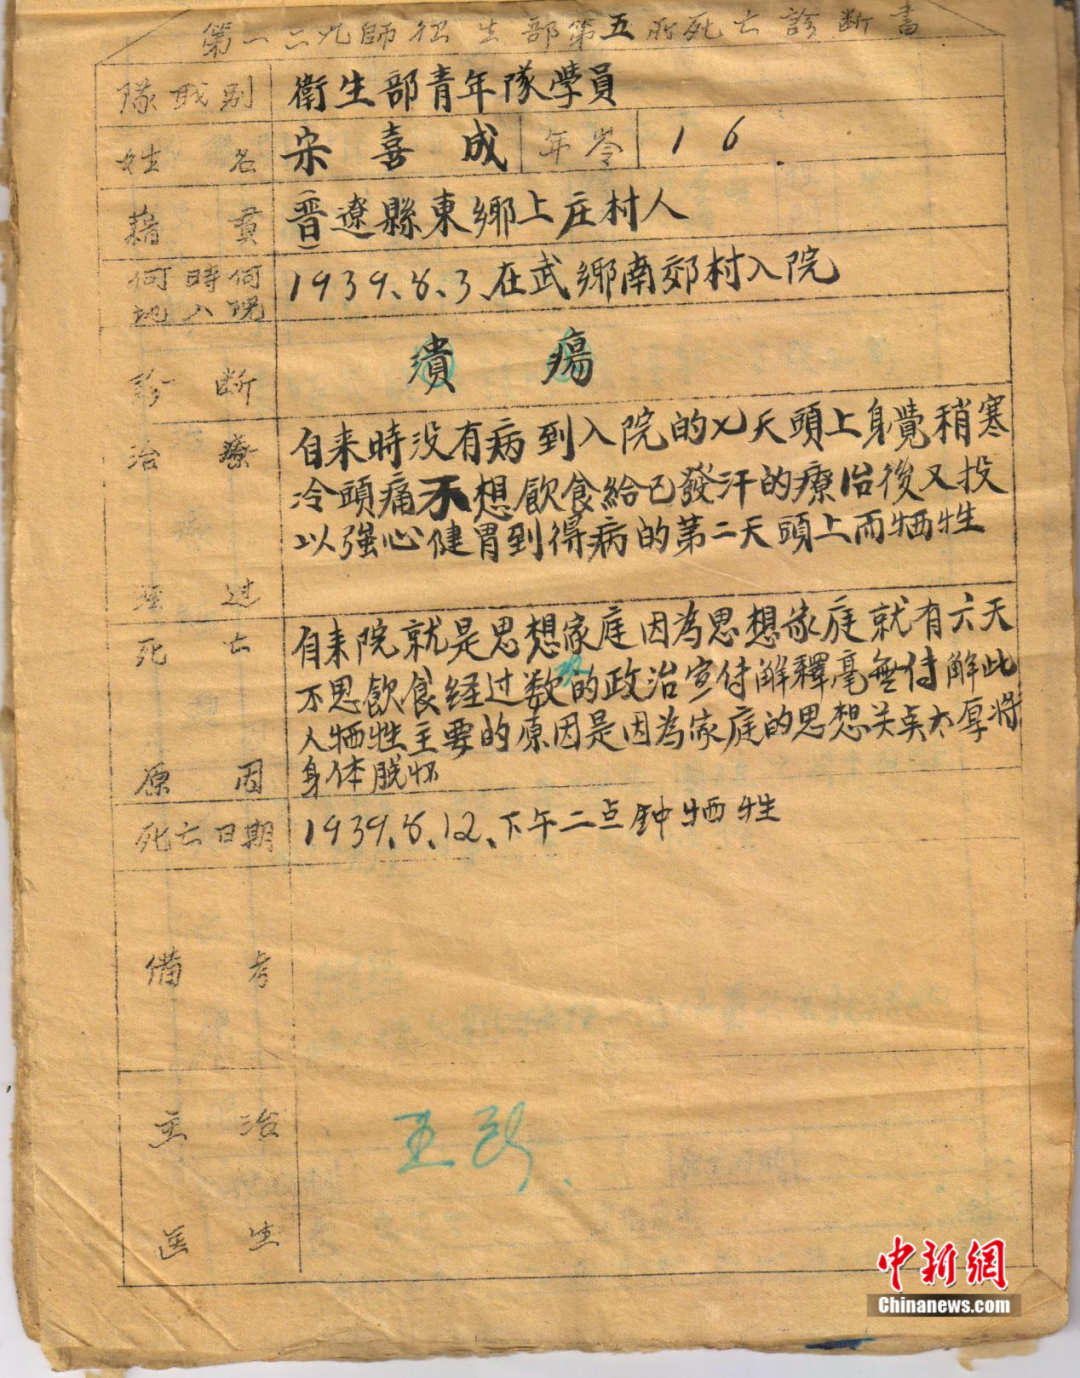 第一二九師衛生部第五所死亡診断書
隊職别 衛生部青年隊學員
姓名 宋喜成 年岺 16
藉貫 晋遼縣東鄉上庄村人
何時何地入院 1939、8、3、在武鄉南郊村入院
診断 潰瘍
治療經过 自来時没有病到入院的七天頭上身覺稍寒
冷頭痛不想飲食給已發汗的療治後又投
以强心健胃到得病的第二天頭上而牺牲
死亡原因 自来院就是思想家庭因為思想家庭就有六天
不思飲食経过数次的政治宣付解釋毫無付解此
人牺牲主要的原因是因為家庭的思想关点太厚将
身体脱怀
死亡日期 1939、8、12、下午二点鈡牺牲
備考
主治医生 王
中新網
Chinanews.com